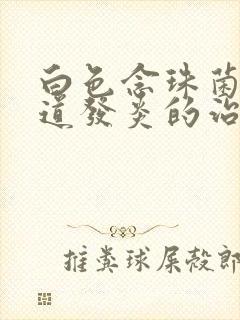 白色念珠菌
道發炎的治
推糞球屎殼郎